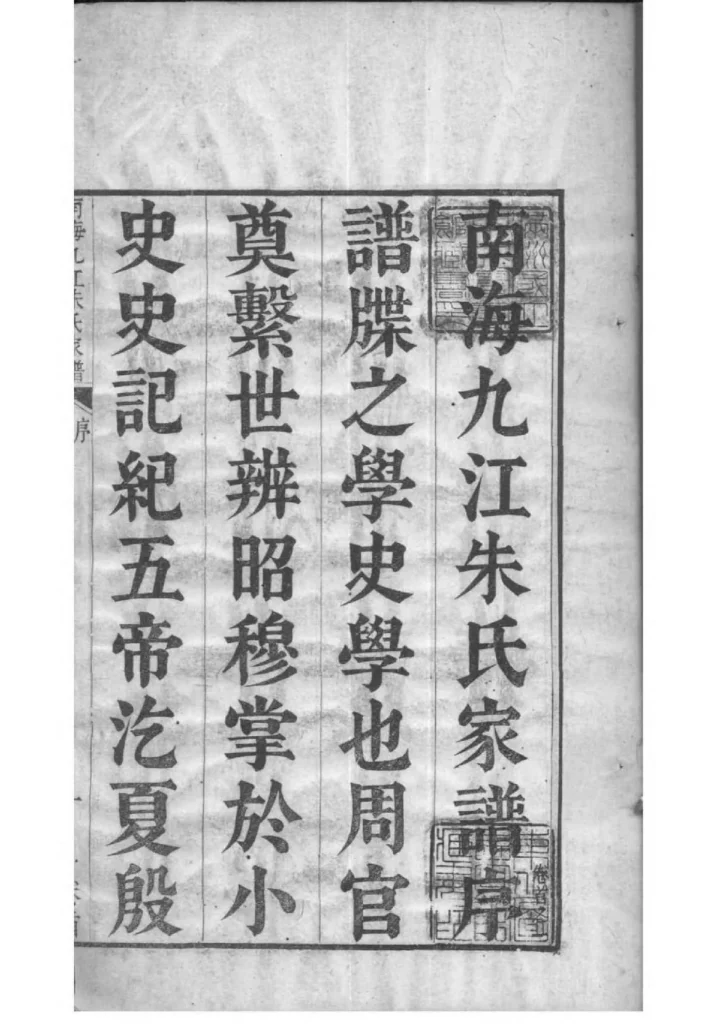 南海九江朱氏家譜序
譜牒之學史學也周官
奠繫世辨昭穆掌於小
史史記紀五帝汔夏殷
南海九江朱氏家譜
序
一